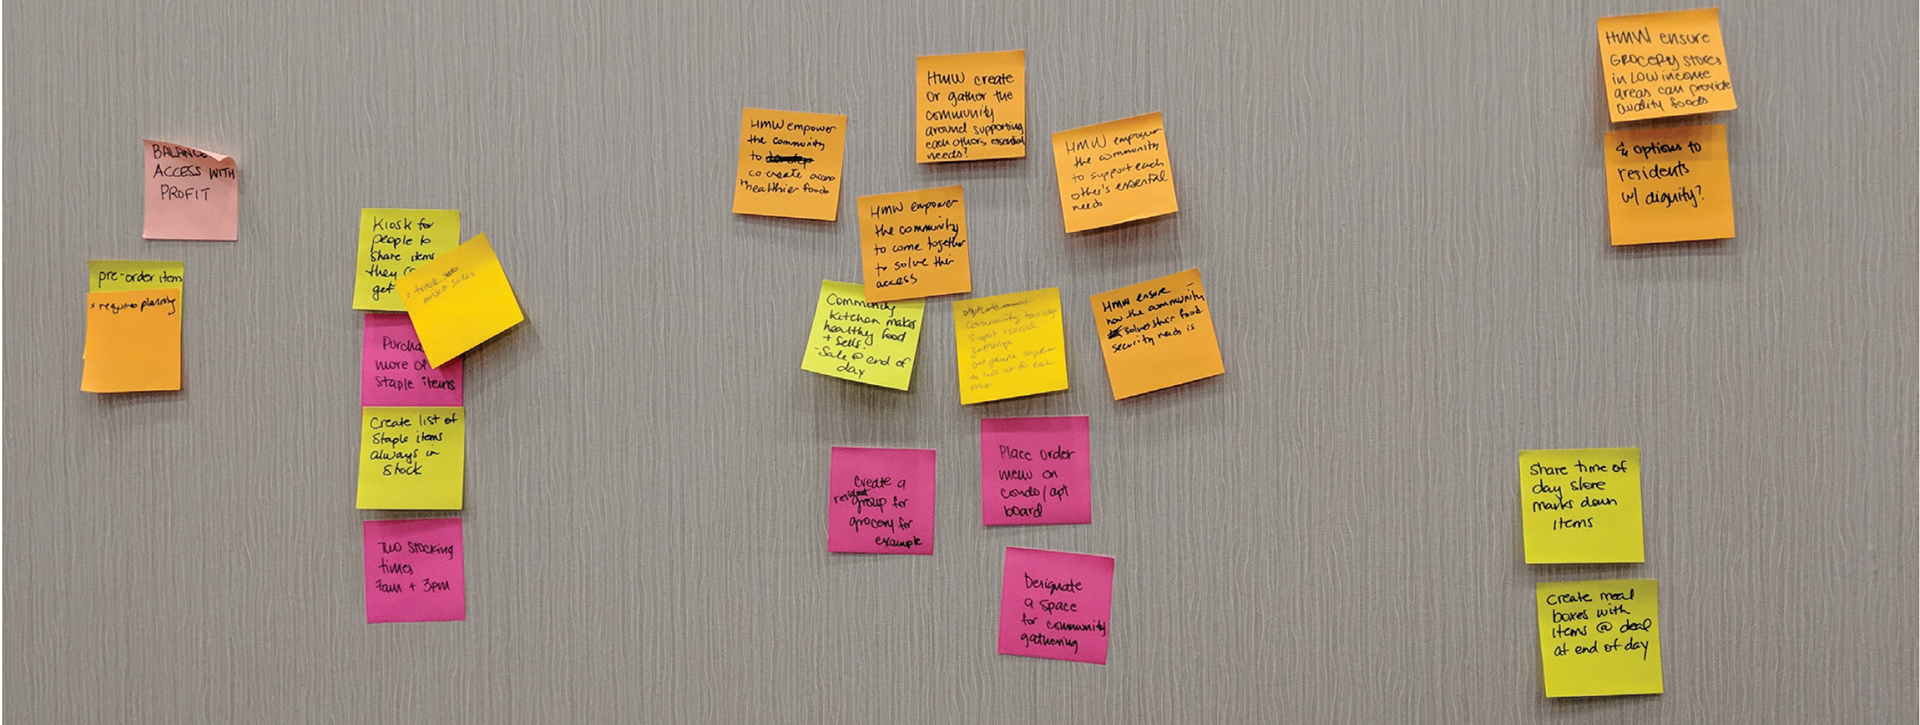 BALANCE
ACCESS WITH
PROFIT
pre-order item
* requires planning
Kiosk for
people to
share items
they
get
Purcha
more of
staple items
Create list of
staple items
always in
stock
Two stocking
times
7am + 3pm
HMW empower
the community
to
co create access
healthier foods
HMW create
or gather the
community
around supporting
each others essential
needs?
HMW empower
the community
to support each
other's essential
needs
HMW empower
the community
to come together
to solve their
access
Community
kitchen makes
healthy food
+ sells!
-Sale @ end of
day
community
gatherings
get people together
to look out for each
other
HMW ensure
how the community
solves their food
security needs is
Create a
resident
group for
grocery for
example
Place order
menu on
condo/apt
board
Designate
a space
for community
gathering
HMW ensure
GROCERY stores
in LOW income
areas can provide
quality foods
& options to
residents
w/ dignity?
Share time of
day store
marks down
items
Create meal
boxes with
items @ deal
at end of day